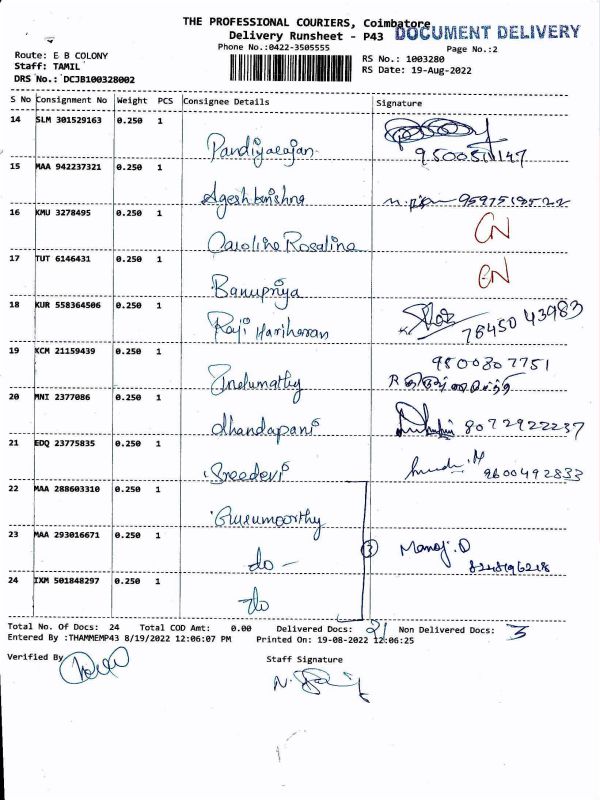 THE PROFESSIONAL COURIERS, Coimbatore
DOCUMENT DELIVERY
Delivery Runsheet - P43
Phone No.:0422-3505555
Page No.:2
Route: E B COLONY
RS No.: 1003280
Staff: TAMIL
RS Date: 19-Aug-2022
DRS No.: DCJB100328002
S No Consignment No Weight PCS Consignee Details Signature
14 SLM 301529163 0.250 1
Pandiyarajan
15 MAA 942237321 0.250 1
Ageshkrishna
16 KMU 3278495 0.250 1
Caroline Rosalina CN
17 TUT 6146431 0.250 1
Banupriya
18 KUR 558364506 0.250 1
Raji Hariharan 78450 43983
19 KCM 21159439 0.250 1
9800807751
Indumathy
20 MNI 2377086 0.250 1
dhandapani 8072922237
21 EDQ 23775835 0.250 1
Sreedevi 9600492833
22 MAA 288603310 0.250 1
Gurumoorthy
23 MAA 293016671 0.250 1
do - 3 Manoj.D
24 IXM 501848297 0.250 1
do
Total No. Of Docs: 24 Total COD Amt: 0.00 Delivered Docs: 21 Non Delivered Docs: 3
Entered By :THAMMEMP43 8/19/2022 12:06:07 PM Printed On: 19-08-2022 12:06:25
Verified By
Staff Signature